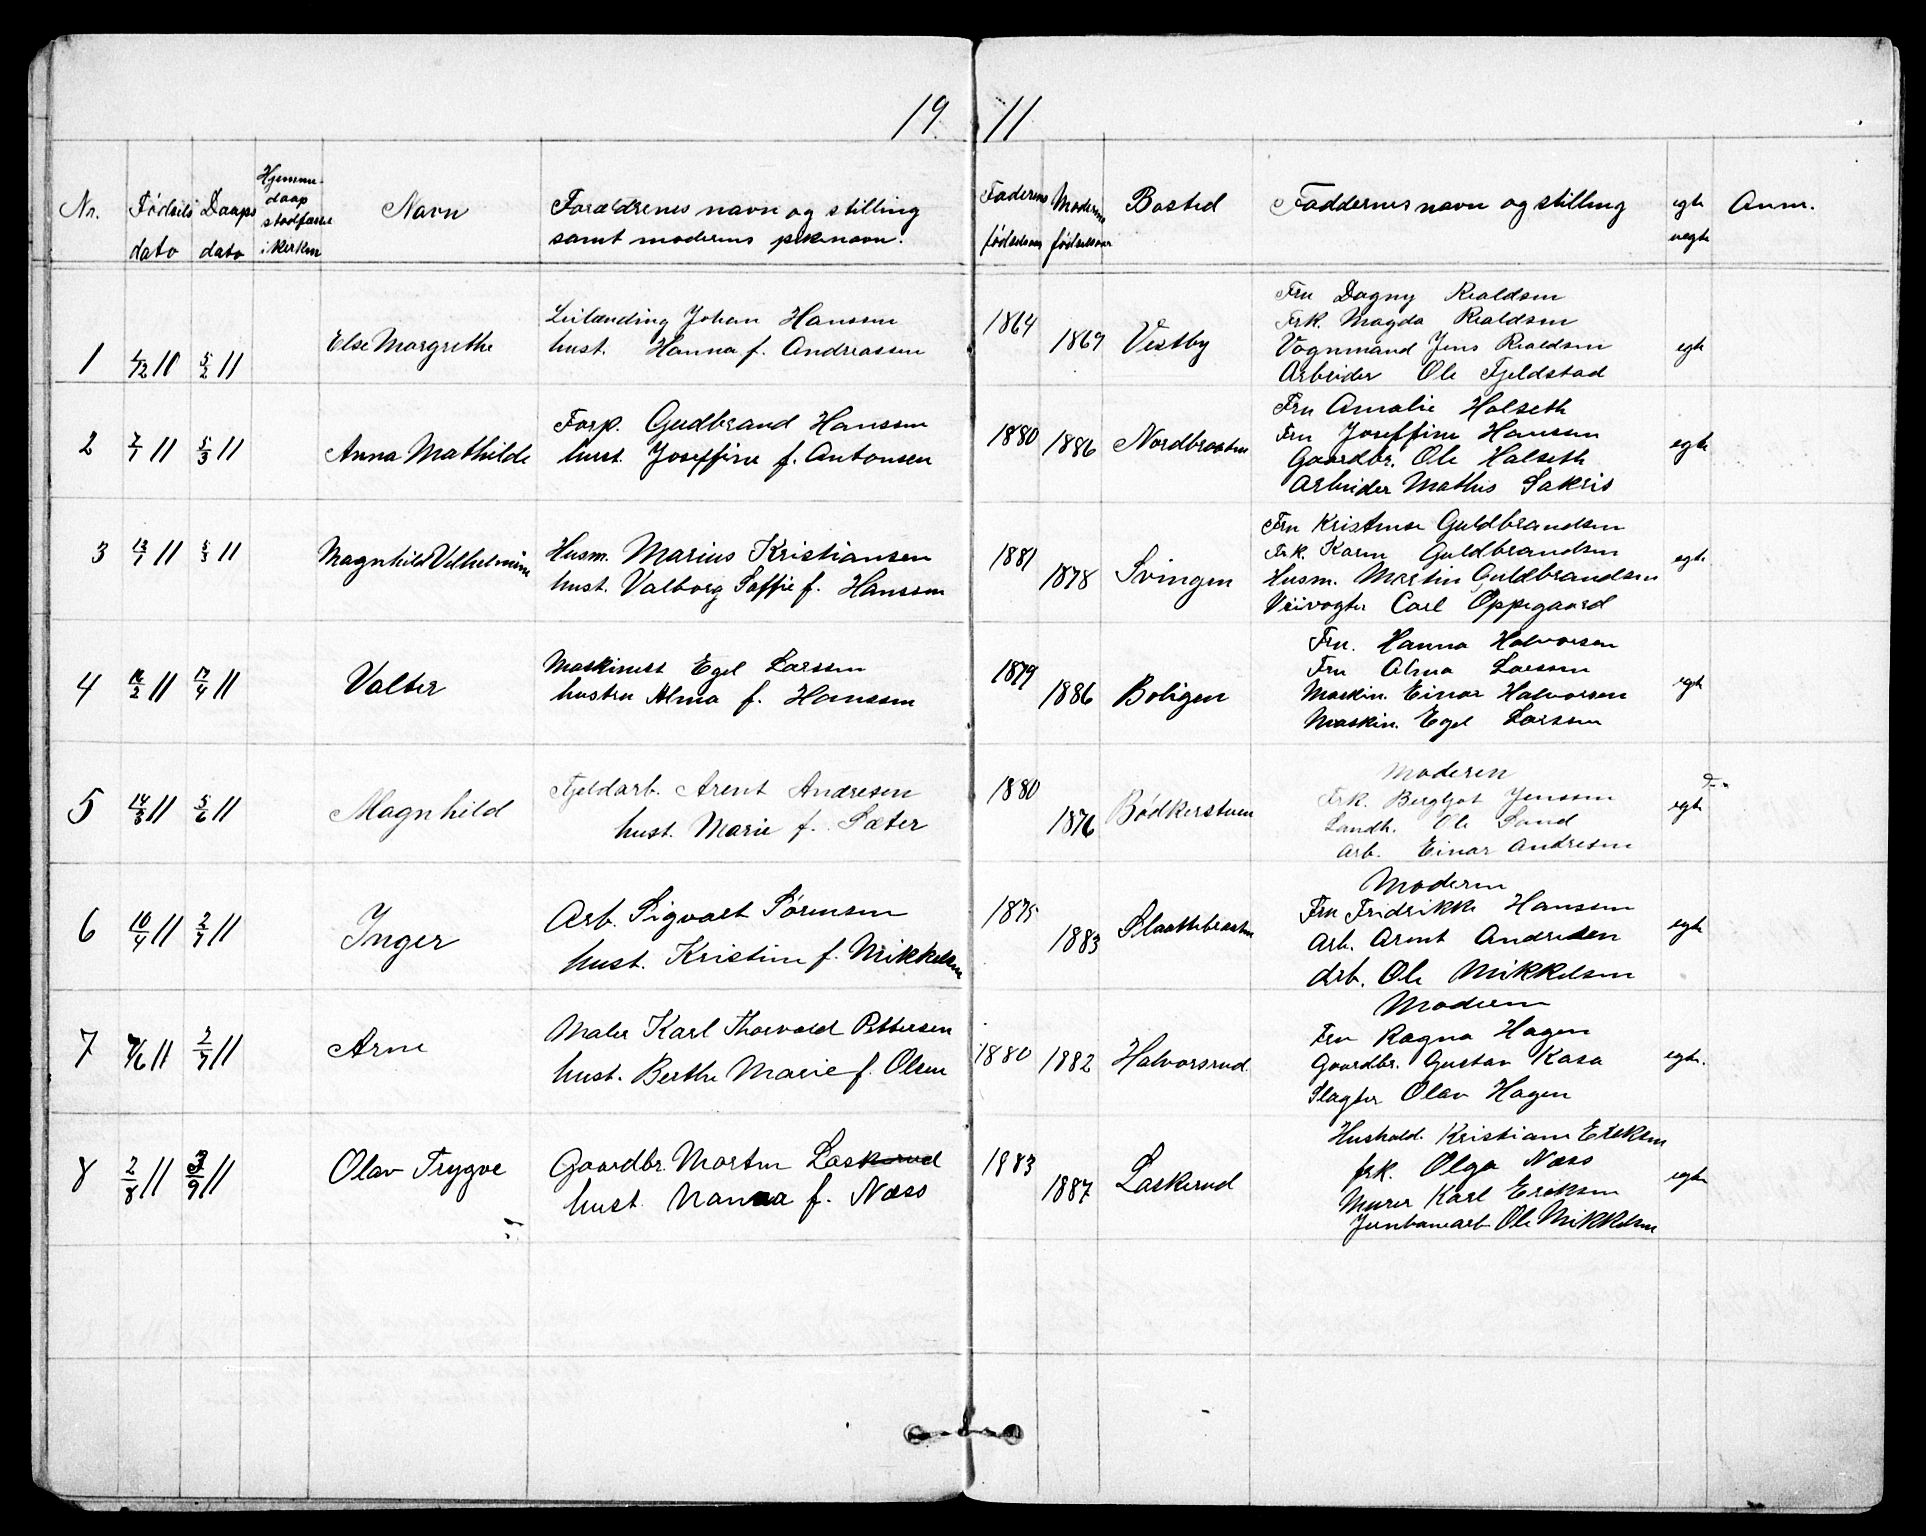 19 11
Nr. Fødsels dato Daaps dato Hjemmedaap stadfæstet i kirken Navn Forældrenes navn og stilling samt moderens pikenavn. Faderens fødselsaar Moderens fødselsaar Bosted Faddernes navn og stilling egte uegte Anm.
1 /12 10 5/2 11 Else Margrethe
Leilænding Johan Hanssen
hust. Hanna f. Andreassen
1864 1869 Vestby
Fru Dagny Realdsen
Frk. Magda Realdsen
Vognmand Jens Realdsen
Arbeider Ole Fjeldstad
egte
2 2/1 11 5/3 11 Anna Mathilde
Forp. Gudbrand Hanssen
hust. Joseffine f. Antonsen
1880 1886 Nordbraaten
Fru Amalie Halseth
Fru Joseffine Hanssen
Gaardbr. Ole Halseth
Arbeider Mathis Sakris
egte
3 13/1 11 5/3 11 Magnhild Vilhelmine
Husm. Marius Kristiansen
hust. Valborg Soffie f. Hanssen
1881 1878 Svingen
Fru Kristense Guldbrandsen
Frk. Karen Guldbrandsen
Husm. Martin Guldbrandsen
Veivogter Carl Oppegaard
egte
4 /2 11 17/4 11 Valter
Maskinist Egel Larssen
hustru Alma f. Hanssen
1879 1886 Boligen
Fru. Hanna Halvorsen
Fru Alma Larssen
Maskin. Einar Halvorsen
Maskin. Egel Larssen
egte
5 14/3 11 5/6 11 Magnhild
Fjeldarb. Arent Andresen
hust. Marie f. Sæter
1880 1876 Bødkerstuen
Moderen
Frk. Bergljot Jenssen
Landh. Ole Sand
Arb. Einar Andresen
egte
6 10/4 11 2/7 11 Inger
Arb. Sigvart Sørensen
hust. Kristine f. Mikkelsen
1875 1883 Slaattebraaten
Moderen
Fru Fridrikke Hanssen
Arb. Arent Andresen
Arb. Ole Mikkelsen
egte
7 7/6 11 2/7 11 Arne
Maler Karl Thorvald Pettersen
hust. Berthe Marie f. Olsen
1880 1882 Halvorsrud
Moderen
Fru Ragna Hagen
Gaardbr. Gustav Kasa
Slagter Olav Hagen
egte.
8 2/8 11 3/9 11 Olav Trygve
Gaardbr. Morten Laskerud
hust. Nanna f. Næss
1883 1887 Laskerud
Hushold. Kristiane Eriksen
frk. Olga Næss
Murer Karl Eriksen
Jernbanearb Ole Mikkelsen
egte